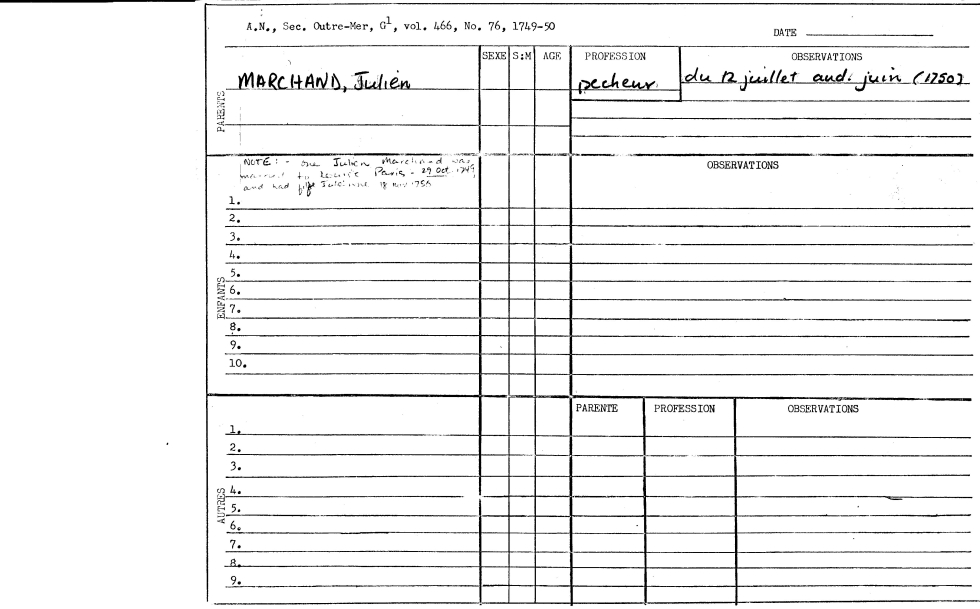 A.N., Sec. Outre-Mer, G1, vol. 466, No. 76, 1749-50
DATE
SEXE S;M AGE PROFESSION OBSERVATIONS
MARCHAND, Julien pecheur du 12 juillet aud. juin (1750)
PARENTS
NOTE: - one Julien Marchand was
married to Louise Paris - 29 Oct 1749
and had Julienne 18 nov 1750
OBSERVATIONS
1.
2.
3.
4.
5.
6.
7.
8.
9.
10.
ENFANTS
PARENTE PROFESSION OBSERVATIONS
1.
2.
3.
4.
5.
6.
7.
8.
9.
AUTRES